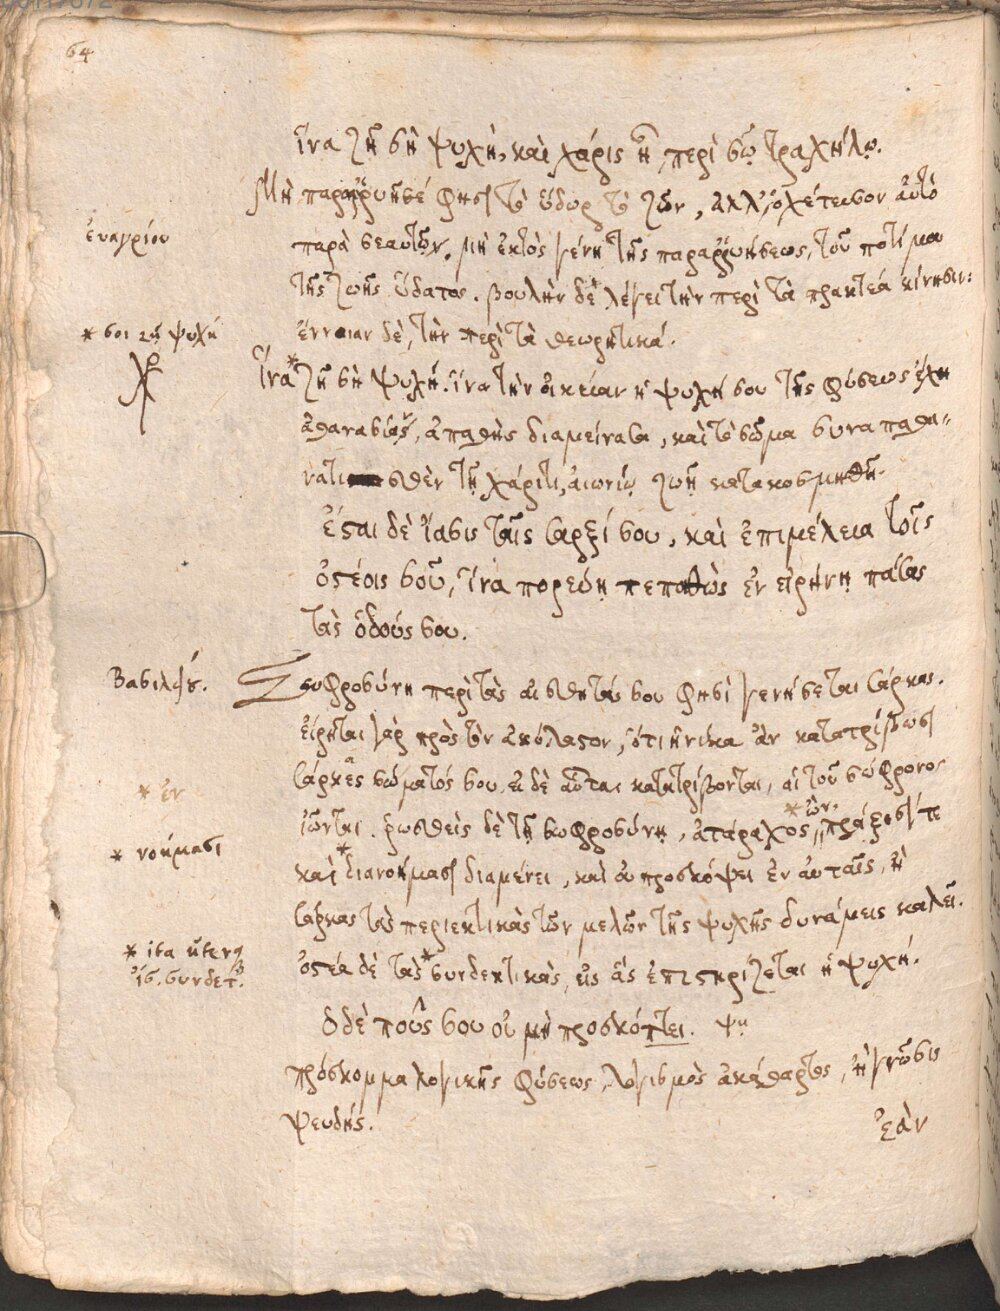 64
ἵνα ζῇ σὴ ψυχὴ, καὶ χάρις ᾖ περὶ σῷ τραχήλῳ.
Μὴ παραῤῥυῇς φησὶ τὸ ὕδωρ τὸ ζῶν, ἀλλ' ὀχέτευσον αὐτὸ
εὐαγρίου
παρὰ σεαυτὸν. μὴ ἐκτὸς γένῃ τῆς παραῤῥυήσεως, τοῦ ποτίμου
τῆς ζωῆς ὕδατος. βουλὴν δὲ λέγει τὴν περὶ τὰ πρακτέα κίνησιν:
* σοι ζῇ ψυχὴ
ἔννοιαν δὲ, τὴν περὶ τὰ θεωρητικά.
ἵνα * ζῇ σὴ ψυχή. ἵνα τὴν οἰκείαν ἡ ψυχή σου τῆς φύσεως ἔχῃ
ἀθανασίαν, ἀπαθὴς διαμείνασα, καὶ τὸ σῶμα συναπαθα-
νατισθὲν τῇ χάριτι, αἰωνίῳ ζωῇ κατακοσμηθῇ.
ἔσται δὲ ἴασις ταῖς σαρξί σου, καὶ ἐπιμέλεια τοῖς
ὀστέοις σοῦ, ἵνα πορεύῃ πεποιθὼς ἐν εἰρήνῃ πάσας
τὰς ὁδούς σου.
Βασιλείου.
Σωφροσύνη περὶ τὰς αἰσθητάς σου φησὶ γενήσεται σάρκας.
εἴρηται γὰρ πρὸς τὸν ἀκόλαστον, ὅτι ἡνίκα ἂν κατατριβῶσι
σάρκες σώματός σου. εἰ δὲ αὗται κατατρίβονται, αἱ τοῦ σώφρονος
* ἐν
ἰῶνται. ῥωσθεὶς δὲ τῇ σωφροσύνῃ, ἀτάραχος * ὢν, πράξεσί τε
* νοήμασι
καὶ * διανοήμασι διαμένει, καὶ οὐ προσκόψει ἐν αὐταῖς, ἢ
σάρκας τὰς περιεκτικὰς τῶν μελῶν τῆς ψυχῆς δυνάμεις καλεῖ.
* ita uterq
ὀστέα δὲ τὰς * συνδεκτικὰς, εἰς ἃς ἐπιστηρίζεται ἡ ψυχή.
ἴσ. συνδετ.
ὁ δὲ ποῦς σου οὐ μὴ προσκόπτει.
πρόσκομμα λογικῆς φύσεως, λογισμὸς ἀκάθαρτος, ἢ γνῶσις
ψευδής.
ἐὰν